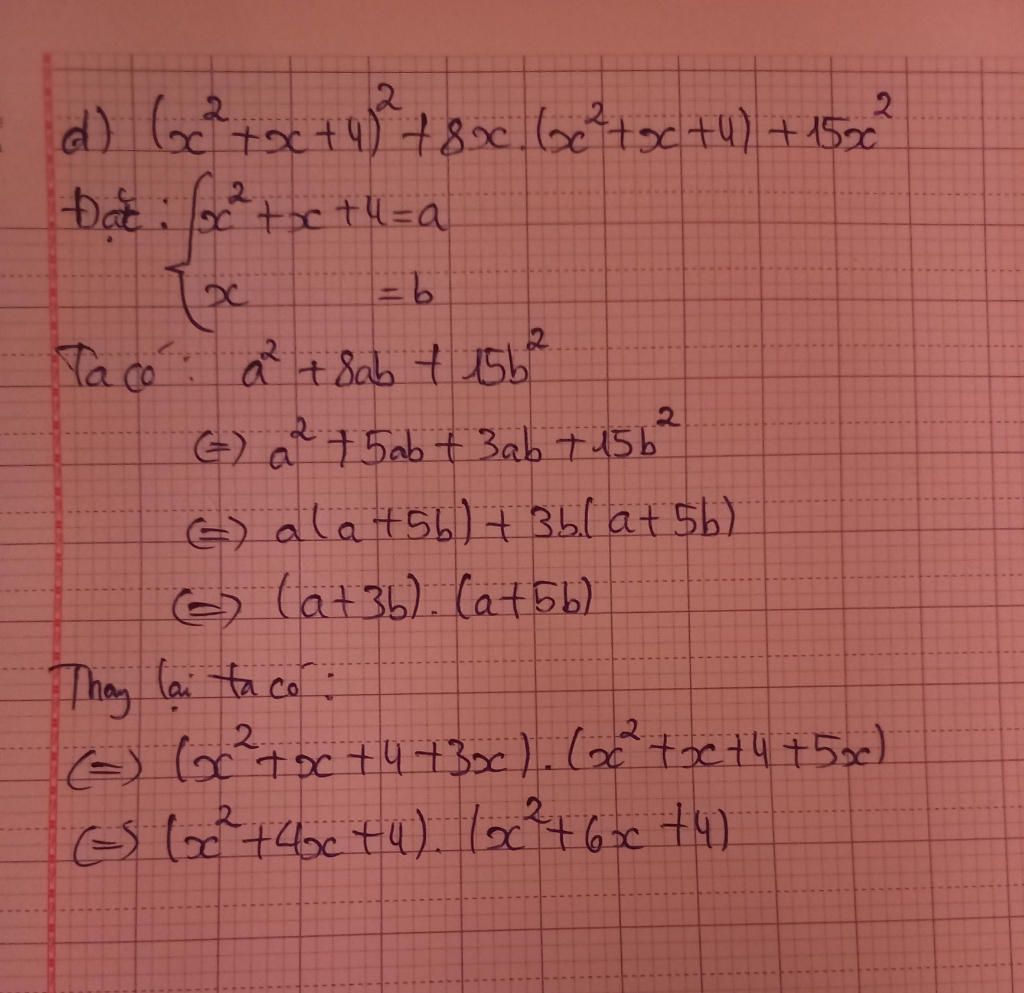 d) (x² + x + 4)² + 8x.(x² + x + 4) + 15x²
Đặt: { x² + x + 4 = a
x = b
Ta có: a² + 8ab + 15b²
(=) a² + 5ab + 3ab + 15b²
(=) a(a + 5b) + 3b.(a + 5b)
(=) (a + 3b).(a + 5b)
Thay lại ta có:
(=) (x² + x + 4 + 3x).(x² + x + 4 + 5x)
(=) (x² + 4x + 4).(x² + 6x + 4)